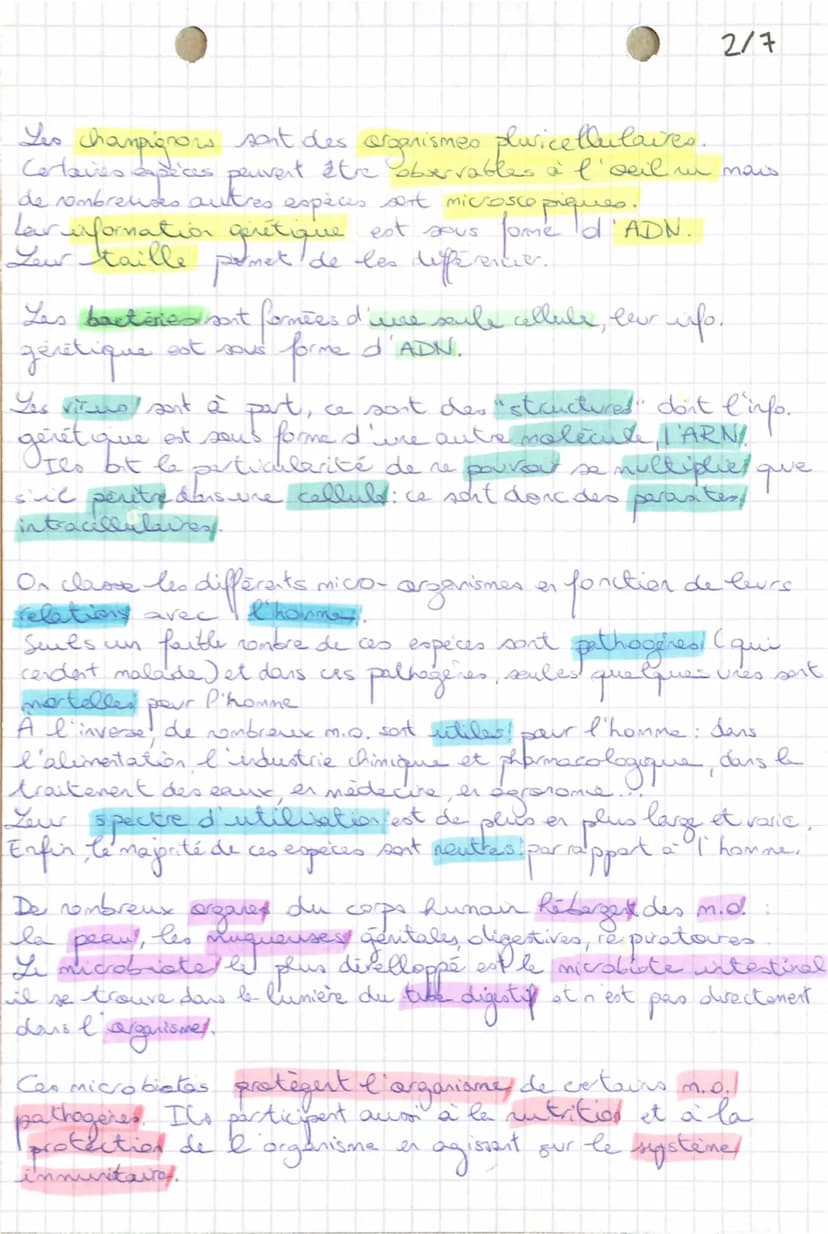 2/7
Les champignons sont des organismes pluricellulaires.
Certaines espèces peuvent être observables à l'oeil nu mais
de nombreuses autres espèces sont microscopiques.
Leur information génétique est sous forme d'ADN.
Leur taille permet de les différencier.
Les bactéries sont formées d'une seule cellule, leur info.
génétique est sous forme d'ADN.
Les virus sont à part, ce sont des "structures" dont l'info.
génétique est sous forme d'une autre molécule, l'ARN.
Ils ont la particularité de ne pouvoir se multiplier que
s'il pénètre dans une cellule : ce sont donc des parasites
intracellulaires.
On classe les différents micro-organismes en fonction de leurs
relations avec l'homme.
Seuls un faible nombre de ces espèces sont pathogènes (qui
rendent malade) et dans ces pathogènes, seules quelques unes sont
mortelles pour l'homme
À l'inverse, de nombreux m.o. sont utiles pour l'homme : dans
l'alimentation, l'industrie chimique et pharmacologique, dans le
traitement des eaux, en médecine, en agronomie...
Leur spectre d'utilisation est de plus en plus large et varié.
Enfin, la majorité de ces espèces sont neutres par rapport à l'homme.
De nombreux organes du corps humain hébergent des m.o. :
la peau, les muqueuses génitales, digestives, respiratoires.
Le microbiote le plus dévelloppé est le microbiote intestinal
il se trouve dans la lumière du tube digestif et n'est pas directement
dans l'organisme.
Ces microbiotes protègent l'organisme de certains m.o.
pathogènes. Ils participent aussi à la nutrition et à la
protection de l'organisme en agissant sur le système
immunitaire.